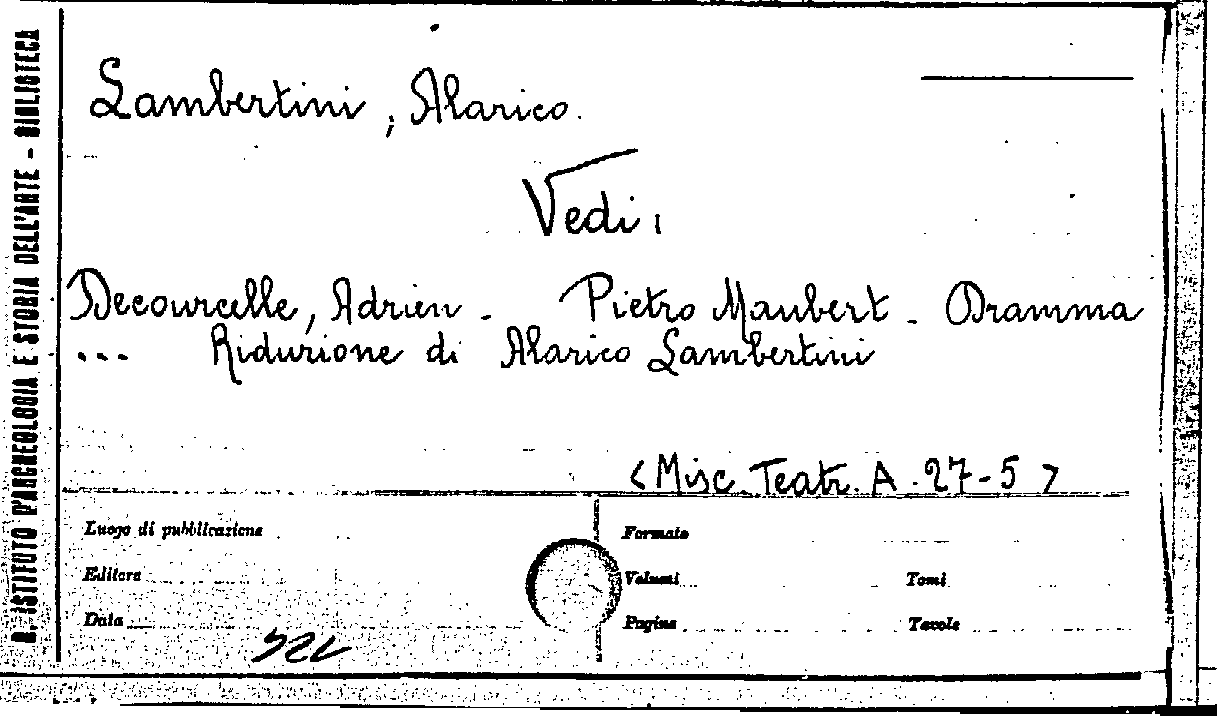 R. ISTITUTO D'ARCHEOLOGIA E STORIA DELL'ARTE - BIBLIOTECA
Lambertini, Alarico.
Vedi:
Decourcelle, Adrien. Pietro Maubert. Dramma
... Riduzione di Alarico Lambertini
<Misc. Teatr. A. 27-5>
Luogo di pubblicazione
Formato
Editore
Volumi
Tomi
Data
Pagine
Tavole